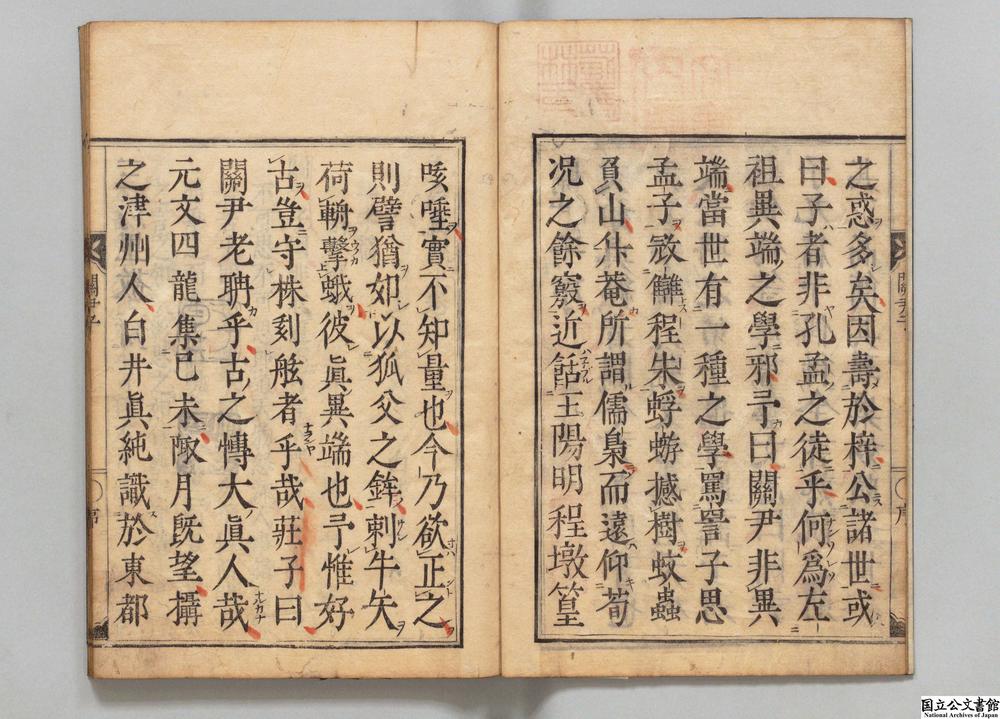 之惑多矣因壽於梓公諸世或
曰子者非孔孟之徒乎何爲左
祖異端之學邪予曰關尹非異
端當世有一種之學罵詈子思
孟子讎程朱蜉蝣撼樹蚊蟲
負山升菴所謂儒梟而遠仰荀
况之餘竅近餂王陽明程墩篁
咳唾實不知量也今乃欲正之
則譬猶如以狐父之鉾刺牛矢
荷鞆擊蛾彼眞異端也予惟好
古豈守株刻舷者乎哉莊子曰
關尹老聃乎古之博大眞人哉
元文四龍集己未陬月既望攝
之津州人白井眞純識於東都
關尹子
序
国立公文書館
National Archives of Japan